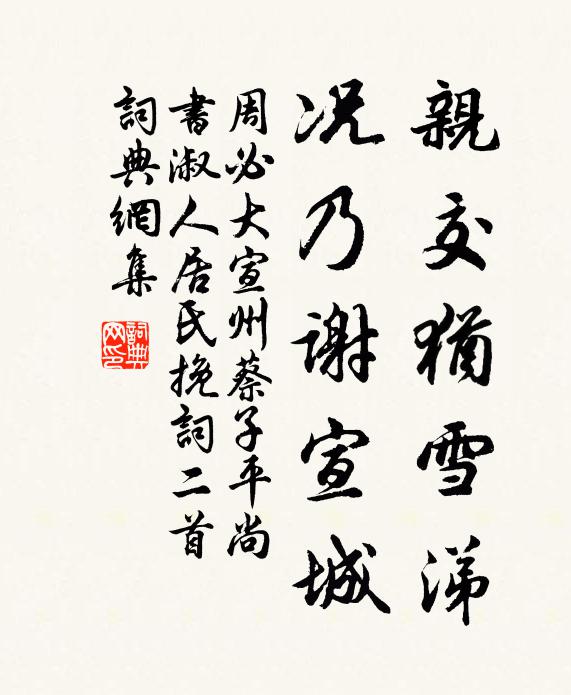 親交猶雪涕
况乃謝宣城
周必大宣州蔡子平尚
書淑人居氏挽詞二首
詞典網集
詞典網印